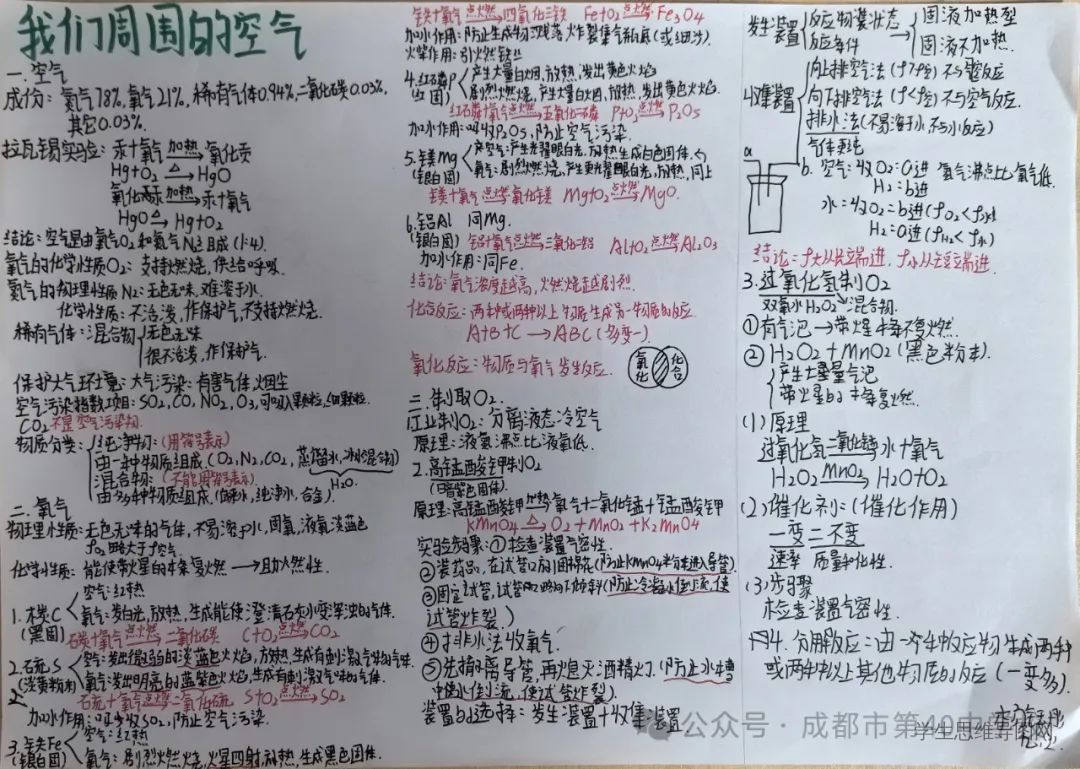 我们周围的空气
一.空气
成份：氮气78%,氧气21%,稀有气体0.94%,二氧化碳0.03%,
其它0.03%.
拉瓦锡实验：汞+氧气 加热→ 氧化汞
Hg+O2 △→ HgO
氧化汞 加热→ 汞+氧气
HgO △→ Hg+O2
结论：空气是由氧气O2和氮气N2组成(1:4).
氧气的化学性质O2：支持燃烧,供给呼吸.
氮气的物理性质N2：无色无味,难溶于水.
化学性质：不活泼,作保护气,不支持燃烧.
稀有气体：混合物 无色无味
很不活泼,作保护气.
保护大气环境：大气污染：有害气体,烟尘
空气污染指数项目：SO2,CO,NO2,O3,可吸入颗粒,细颗粒.
CO2不是空气污染物.
物质分类：纯净物：(用符号表示)
由一种物质组成.(O2,N2,CO2,蒸馏水,冰水混合物)
H2O.
混合物：(不能用符号表示).
由多种物质组成.(自来水,纯净水,合金).
二.氧气
物理性质：无色无味的气体,不易溶于水,固氧,液氧,淡蓝色
ρO2略大于ρ空气.
化学性质：能使带火星的木条复燃→助燃性.
1.木炭C 空气：红热
(黑固) 氧气：发白光,放热,生成能使澄清石灰水变浑浊的气体.
石炭+氧气 点燃→ 二氧化碳 C+O2 点燃→ CO2
2.石硫S 空气：发出微弱的淡蓝色火焰,放热,生成有刺激气味的气体.
(淡黄粉末) 氧气：发出明亮的蓝紫色火焰,生成有刺激气味的气体.
石硫+氧气 点燃→ 二氧化硫 S+O2 点燃→ SO2
加水作用：吸收SO2,防止空气污染.
3.铁Fe 空气：红热
(银白固) 氧气：剧烈燃烧,火星四射,放热,生成黑色固体.
铁+氧气 点燃→ 四氧化三铁 Fe+O2 点燃→ Fe3O4
加水作用：防止生成物溅落炸裂集气瓶底(或细沙).
火柴作用：引燃铁丝
4.红磷P 产生大量白烟,放热,发出黄色火焰
(红固) 剧烈燃烧,产生大量白烟,放热,发出黄色火焰.
红磷+氧气 点燃→ 五氧化二磷 P+O2 点燃→ P2O5
加水作用：吸收P2O5,防止空气污染.
5.镁Mg 空气：产生耀眼白光,放热生成白色固体.
(银白固) 氧气：剧烈燃烧,产生更耀眼白光,放热,同上
镁+氧气 点燃→ 氧化镁 Mg+O2 点燃→ MgO.
6.铝Al 同Mg.
(银白固) 铝+氧气 点燃→ 三氧化二铝 Al+O2 点燃→ Al2O3
加水作用：同Fe.
结论：氧气浓度越高,火燃烧越剧烈
化合反应：两种或两种以上物质生成另一物质的反应.
A+B+C→ABC(多变一)
氧化反应：物质与氧气发生反应.
氧化 化合
三.制取O2.
1.工业制O2：分离液态冷空气
原理：液氮沸点比液氧低.
2.高锰酸钾制O2
(暗紫色固体).
原理：高锰酸钾 加热→ 氧气+二氧化锰+锰酸钾
KMnO4 △→ O2+MnO2+K2MnO4
实验步骤：①检查装置气密性.
②装药品,在试管口放团棉花(防止KMnO4粉末进入导管).
③固定试管,试管口略向下倾斜(防止冷凝水倒流,使
试管炸裂)
④排水法收氧气.
⑤先撤离导管,再熄灭酒精灯.(防止水槽
中使水倒流,使试管炸裂).
装置的选择：发生装置+收集装置
发生装置 反应物装状态 → 固液加热型
反应条件 固液不加热.
收集装置 向上排空气法(ρ>ρ空)不与空反应
向下排空气法(ρ<ρ空)不与空气反应.
排水法(不易溶于水,不与水反应)
气体更纯
a
b.空气：收O2：a进 氢气沸点比氧气低.
H2：b进
水：收O2=b进(ρO2<ρ水)
H2=a进(ρH2<ρ水)
结论：ρ大从长端进,ρ小从短端进.
3.过氧化氢制O2
双氧水H2O2→混合物.
①有气泡→带火星木条不复燃.
②H2O2+MnO2(黑色粉末).
产生大量气泡
带火星的木条复燃.
(1)原理
过氧化氢 二氧化锰→ 水+氧气
H2O2 MnO2→ H2O+O2
(2)催化剂：(催化作用)
一变二不变
速率 质量和化性.
(3)步骤
检查装置气密性.
4.分解反应：由一种反应物生成两种
或两种以上其他物质的反应(一变多).
公众号·成都市第40中
学生思维导图网